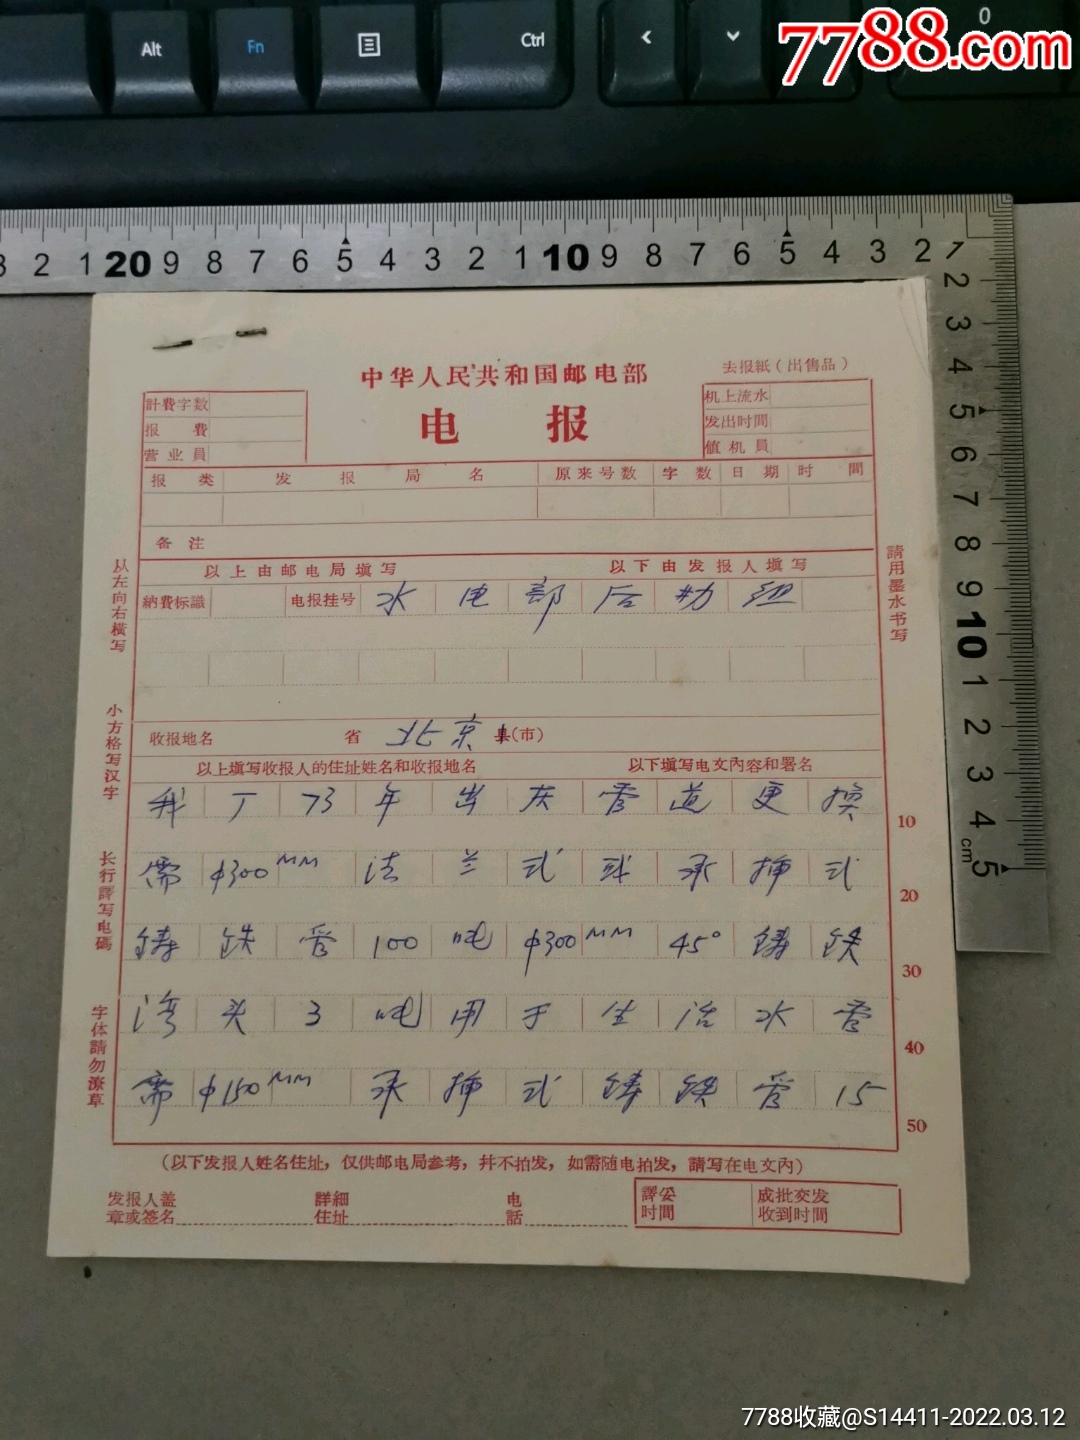 Alt Fn Ctrl 0
7788.com
3 2 1 20 9 8 7 6 5 4 3 2 1 10 9 8 7 6 5 4 3 2 1
2 3 4 5 6 7 8 9 10 1 2 3 4 cm 5
中华人民共和国邮电部
去报紙（出售品）
电报
計費字数
报費
营业員
机上流水
发出时間
值机員
报类 发报局名 原来号数 字数 日期 时間
备注
以上由邮电局填写 以下由发报人填写
納費标識 电报挂号 水电部后勤组
收报地名 省 北京 县(市)
以上填写收报人的住址姓名和收报地名 以下填写电文內容和署名
我厂73年出灰管道更换 10
需φ300MM法兰式或承插式 20
铸铁管100吨φ300MM45°铸铁 30
湾头3吨用于生活水管 40
需φ150MM承插式铸铁管15 50
从左向右横写
小方格写汉字
长行譯写电碼
字体請勿潦草
請用墨水书写
（以下发报人姓名住址，仅供邮电局参考，幷不拍发，如需随电拍发，請写在电文內）
发报人盖章或签名 詳細住址 电話
譯妥时間
成批交发收到时間
7788收藏@S14411-2022.03.12